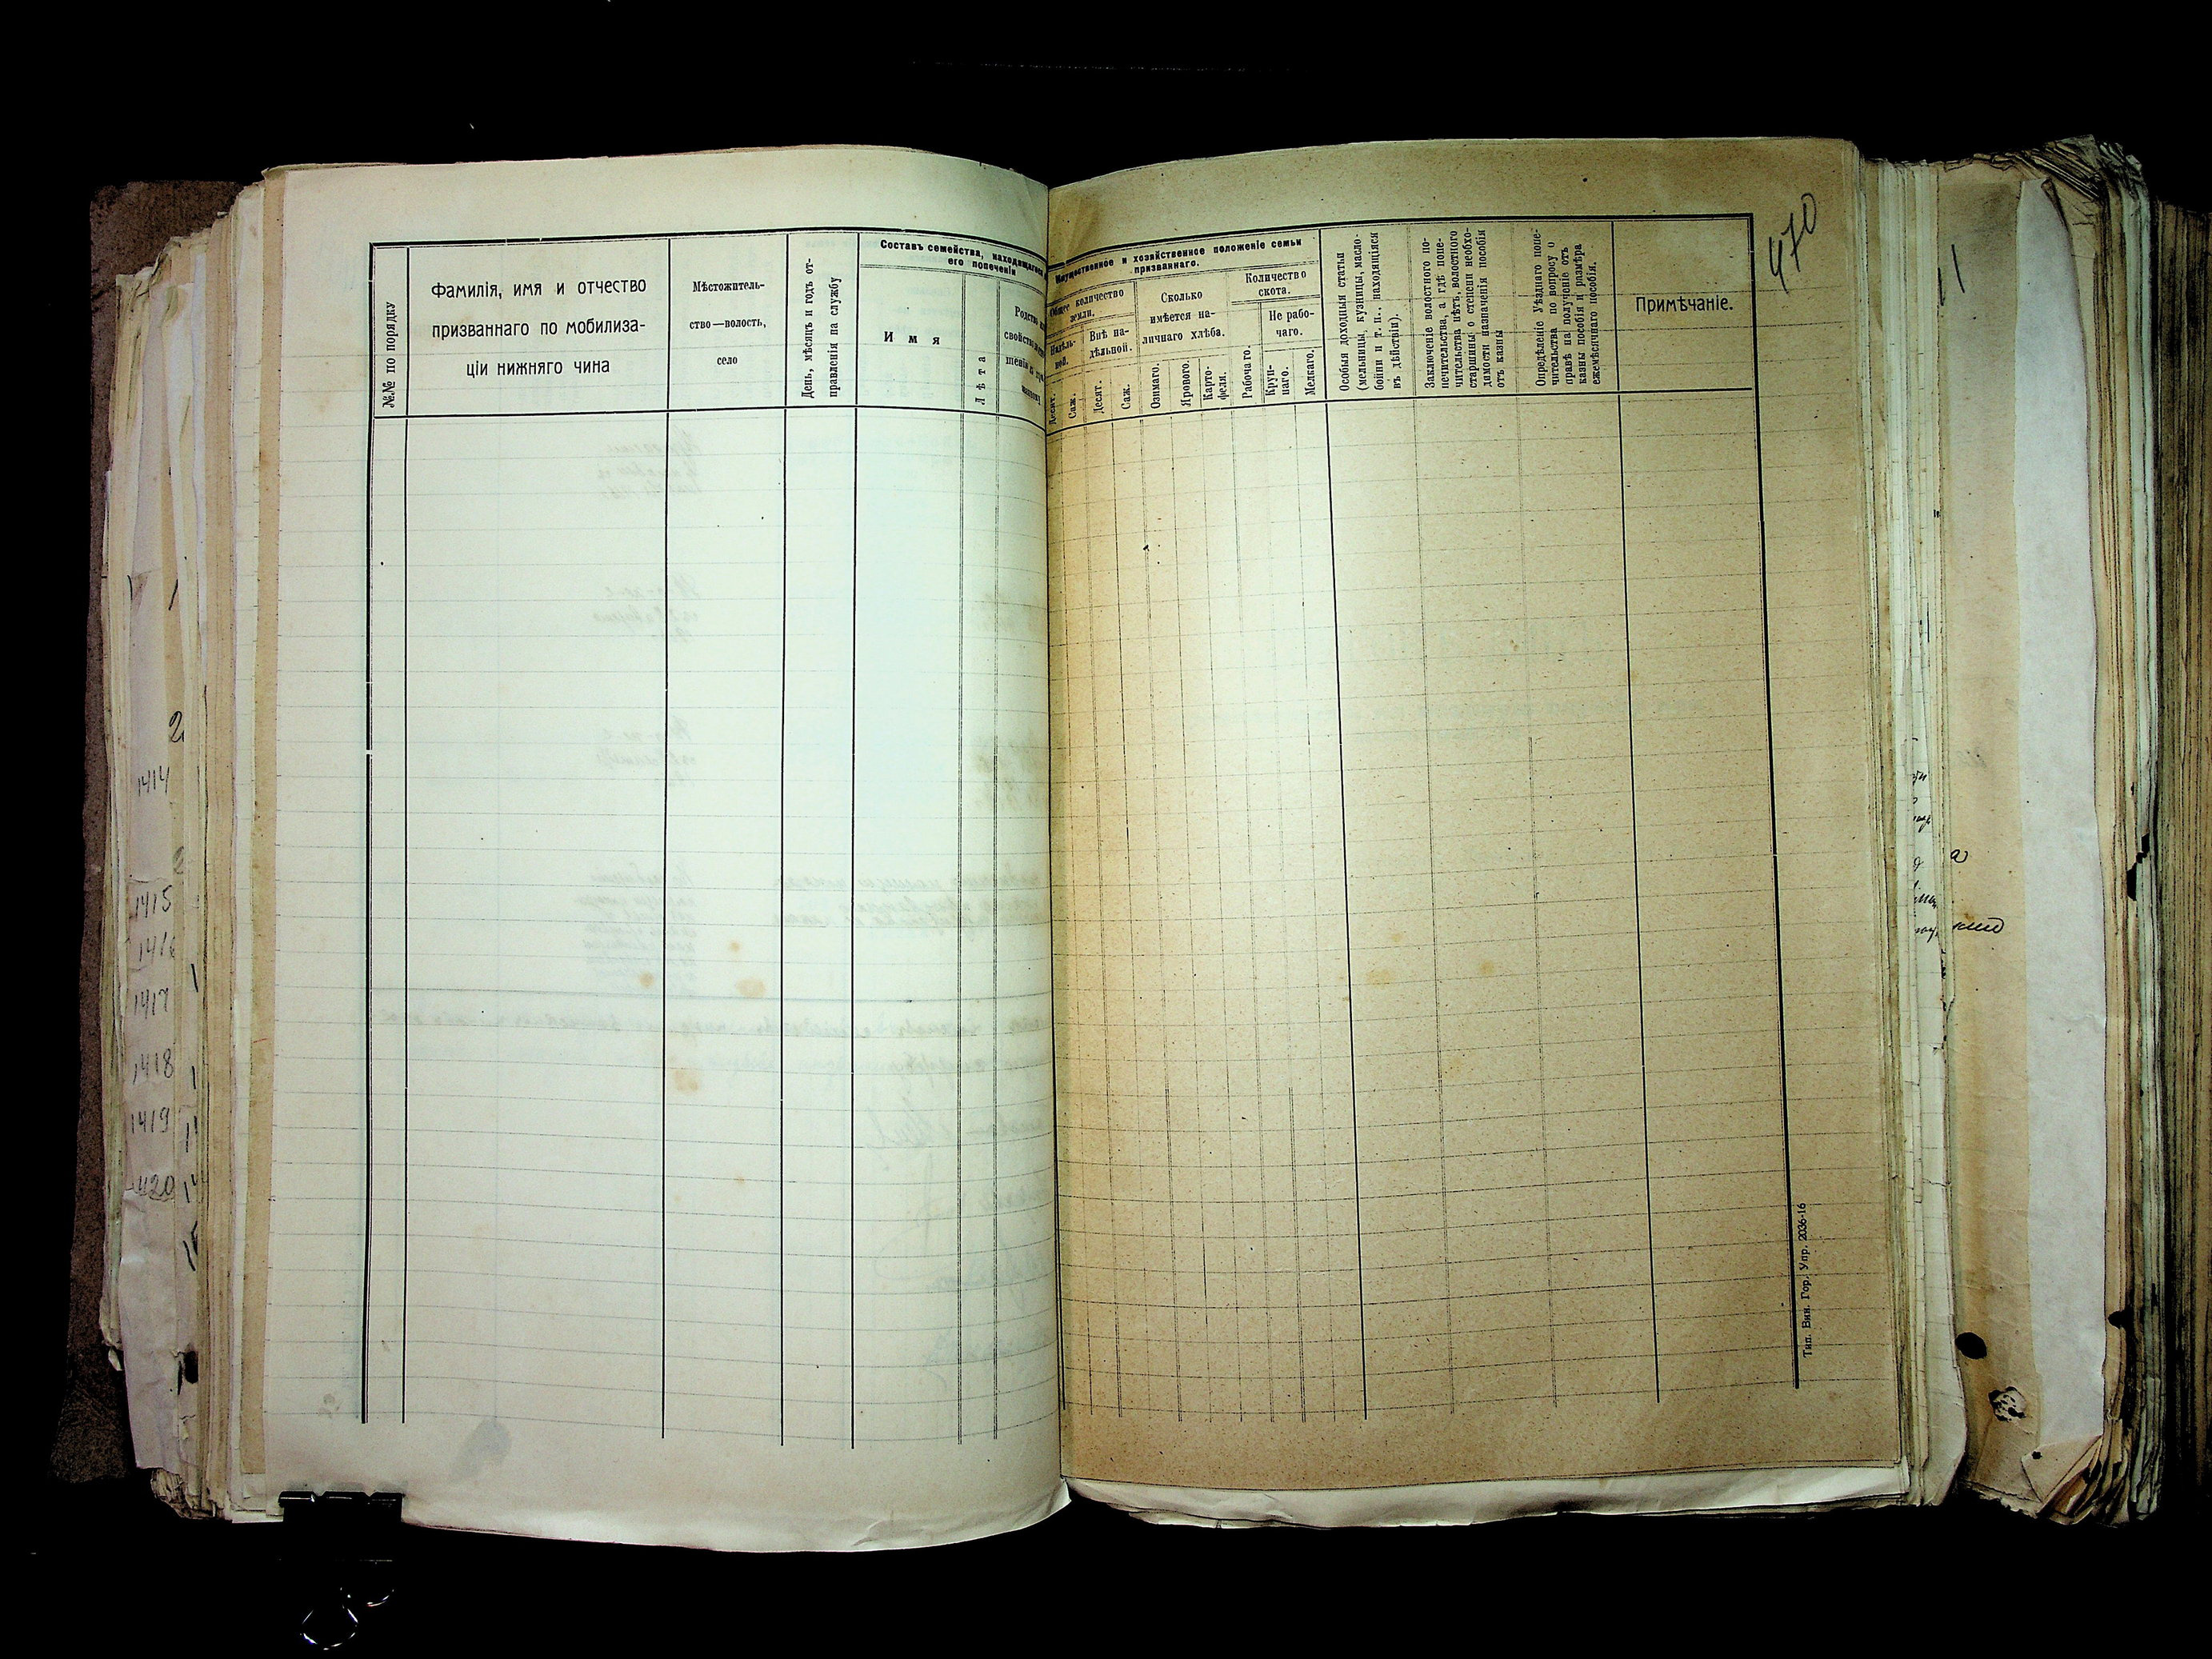 №№ по порядку
Фамилія, имя и отчество
призваннаго по мобилиза-
ціи нижняго чина
Мѣстожитель-
ство — волость,
село
День, мѣсяцъ и годъ от-
правленія на службу
Составъ семейства, находящагося
его попеченіи
И м я
Л ѣ т а
Родство
свойство
Имущественное и хозяйственное положеніе семьи
призваннаго.
Общее количество
земли.
Надѣль-
ной.
Внѣ на-
дѣльной.
Десят.
Саж.
Десят.
Саж.
Сколько
имѣется на-
личнаго хлѣба.
Озимаго.
Ярового.
Карто-
феля.
Количество
скота.
Рабочаго.
Не рабо-
чаго.
Круп-
наго.
Мелкаго.
Особыя доходныя статьи
(мельницы, кузницы, масло-
бойни и т. п., находящіяся
въ дѣйствіи).
Заключеніе волостного по-
печительства, а гдѣ попе-
чительства нѣтъ, волостного
старшины о степени необхо-
димости назначенія пособія
отъ казны
Опредѣленіе Уѣзднаго попе-
чительства по вопросу о
правѣ на полученіе отъ
казны пособія и размѣра
ежемѣсячнаго пособія.
Примѣчаніе.
470
Тип. Вин. Гор. Упр. 2036-16
2
1414
1415
1416
1417
1418
1419
1420